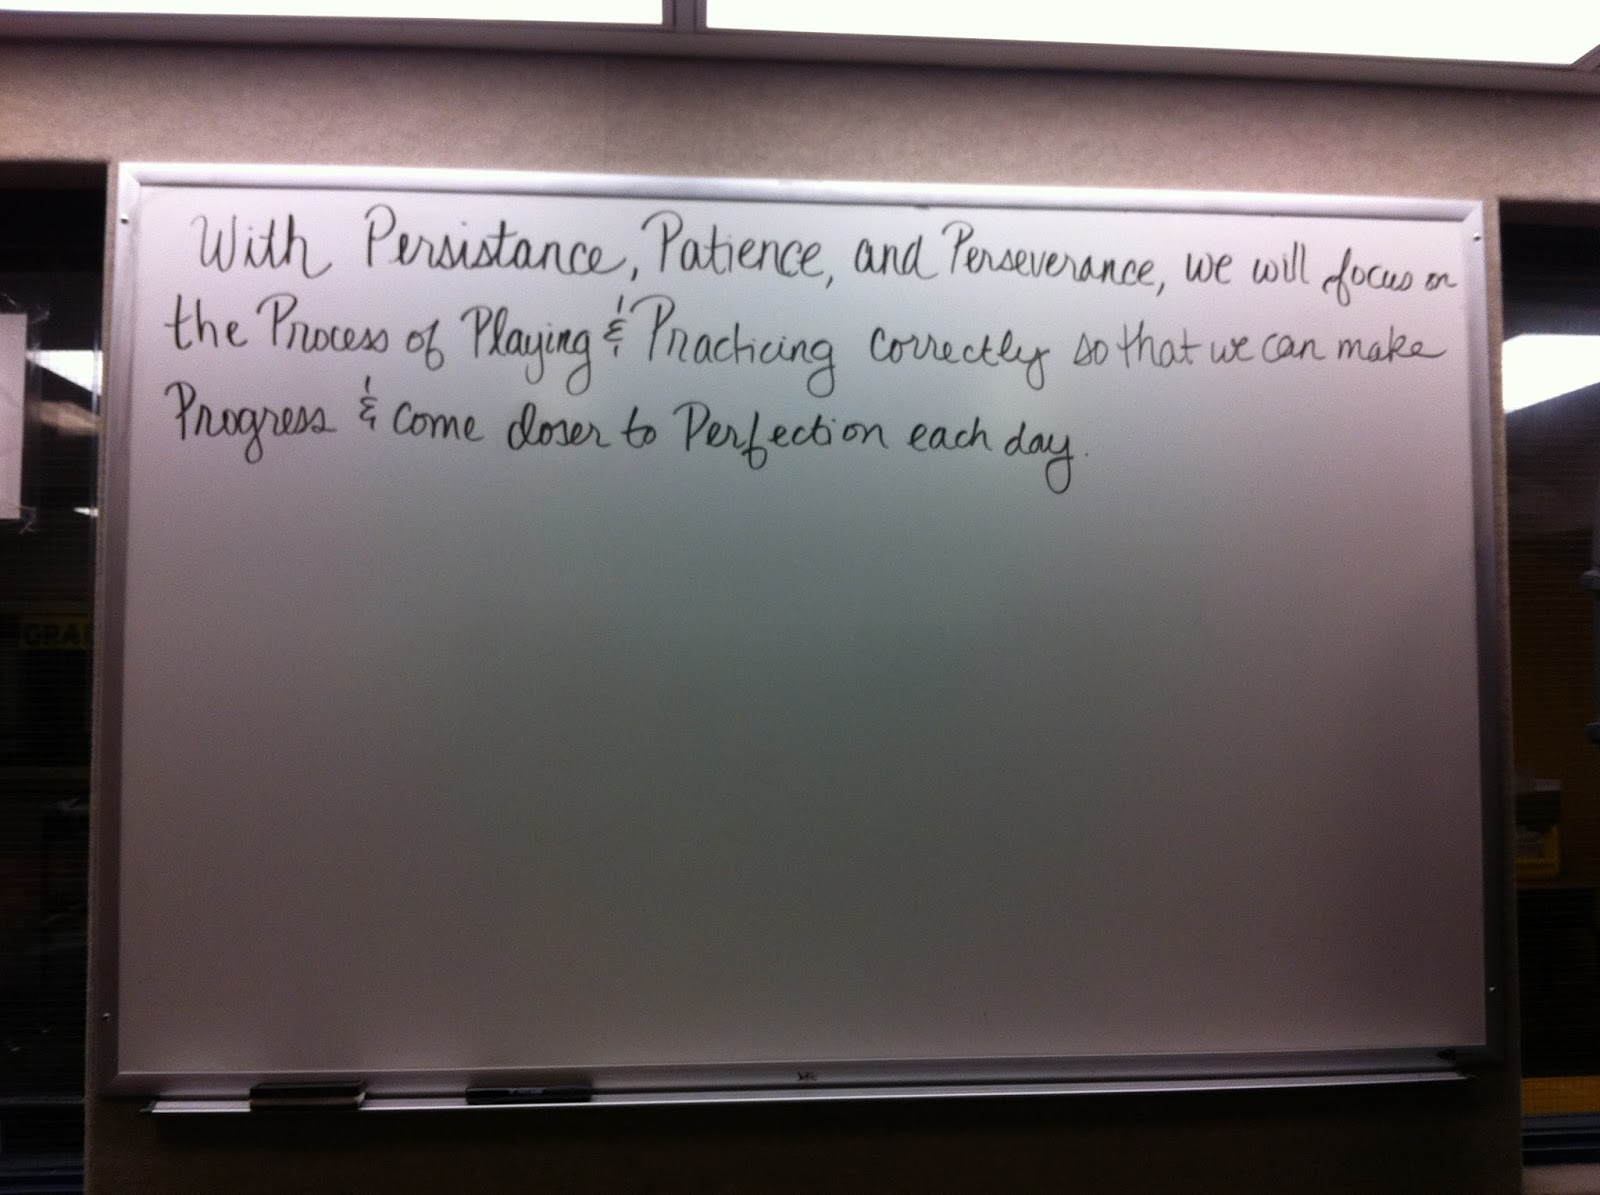 With Persistance, Patience, and Perseverance, we will focus on
the Process of Playing & Practicing correctly so that we can make
Progress & come closer to Perfection each day.
GRA